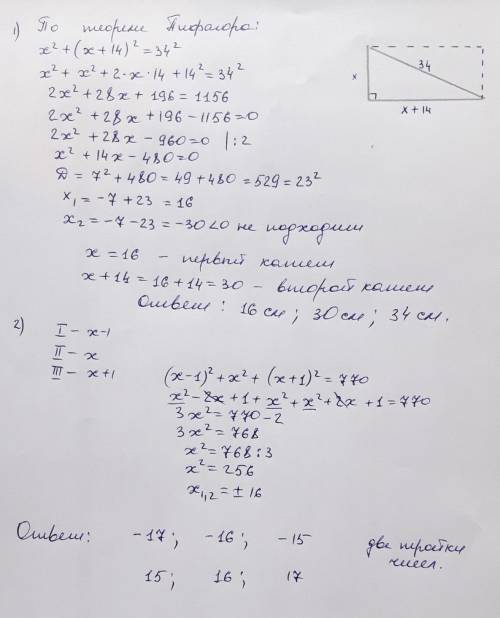 1) По теореме Пифагора:
x² + (x + 14)² = 34²
x² + x² + 2·x·14 + 14² = 34²
2x² + 28x + 196 = 1156
2x² + 28x + 196 - 1156 = 0
2x² + 28x - 960 = 0 |:2
x² + 14x - 480 = 0
D = 7² + 480 = 49 + 480 = 529 = 23²
x₁ = -7 + 23 = 16
x₂ = -7 - 23 = -30 < 0 не подходит
x = 16 - первый катет
x + 14 = 16 + 14 = 30 - второй катет
Ответ: 16 см; 30 см; 34 см.
x
34
x + 14
2) I - x-1
II - x
III - x+1
(x-1)² + x² + (x+1)² = 770
x² - 2x + 1 + x² + x² + 2x + 1 = 770
3x² = 770 - 2
3x² = 768
x² = 768 : 3
x² = 256
x₁,₂ = ± 16
Ответ: -17; -16; -15
15; 16; 17
две тройки
чисел.